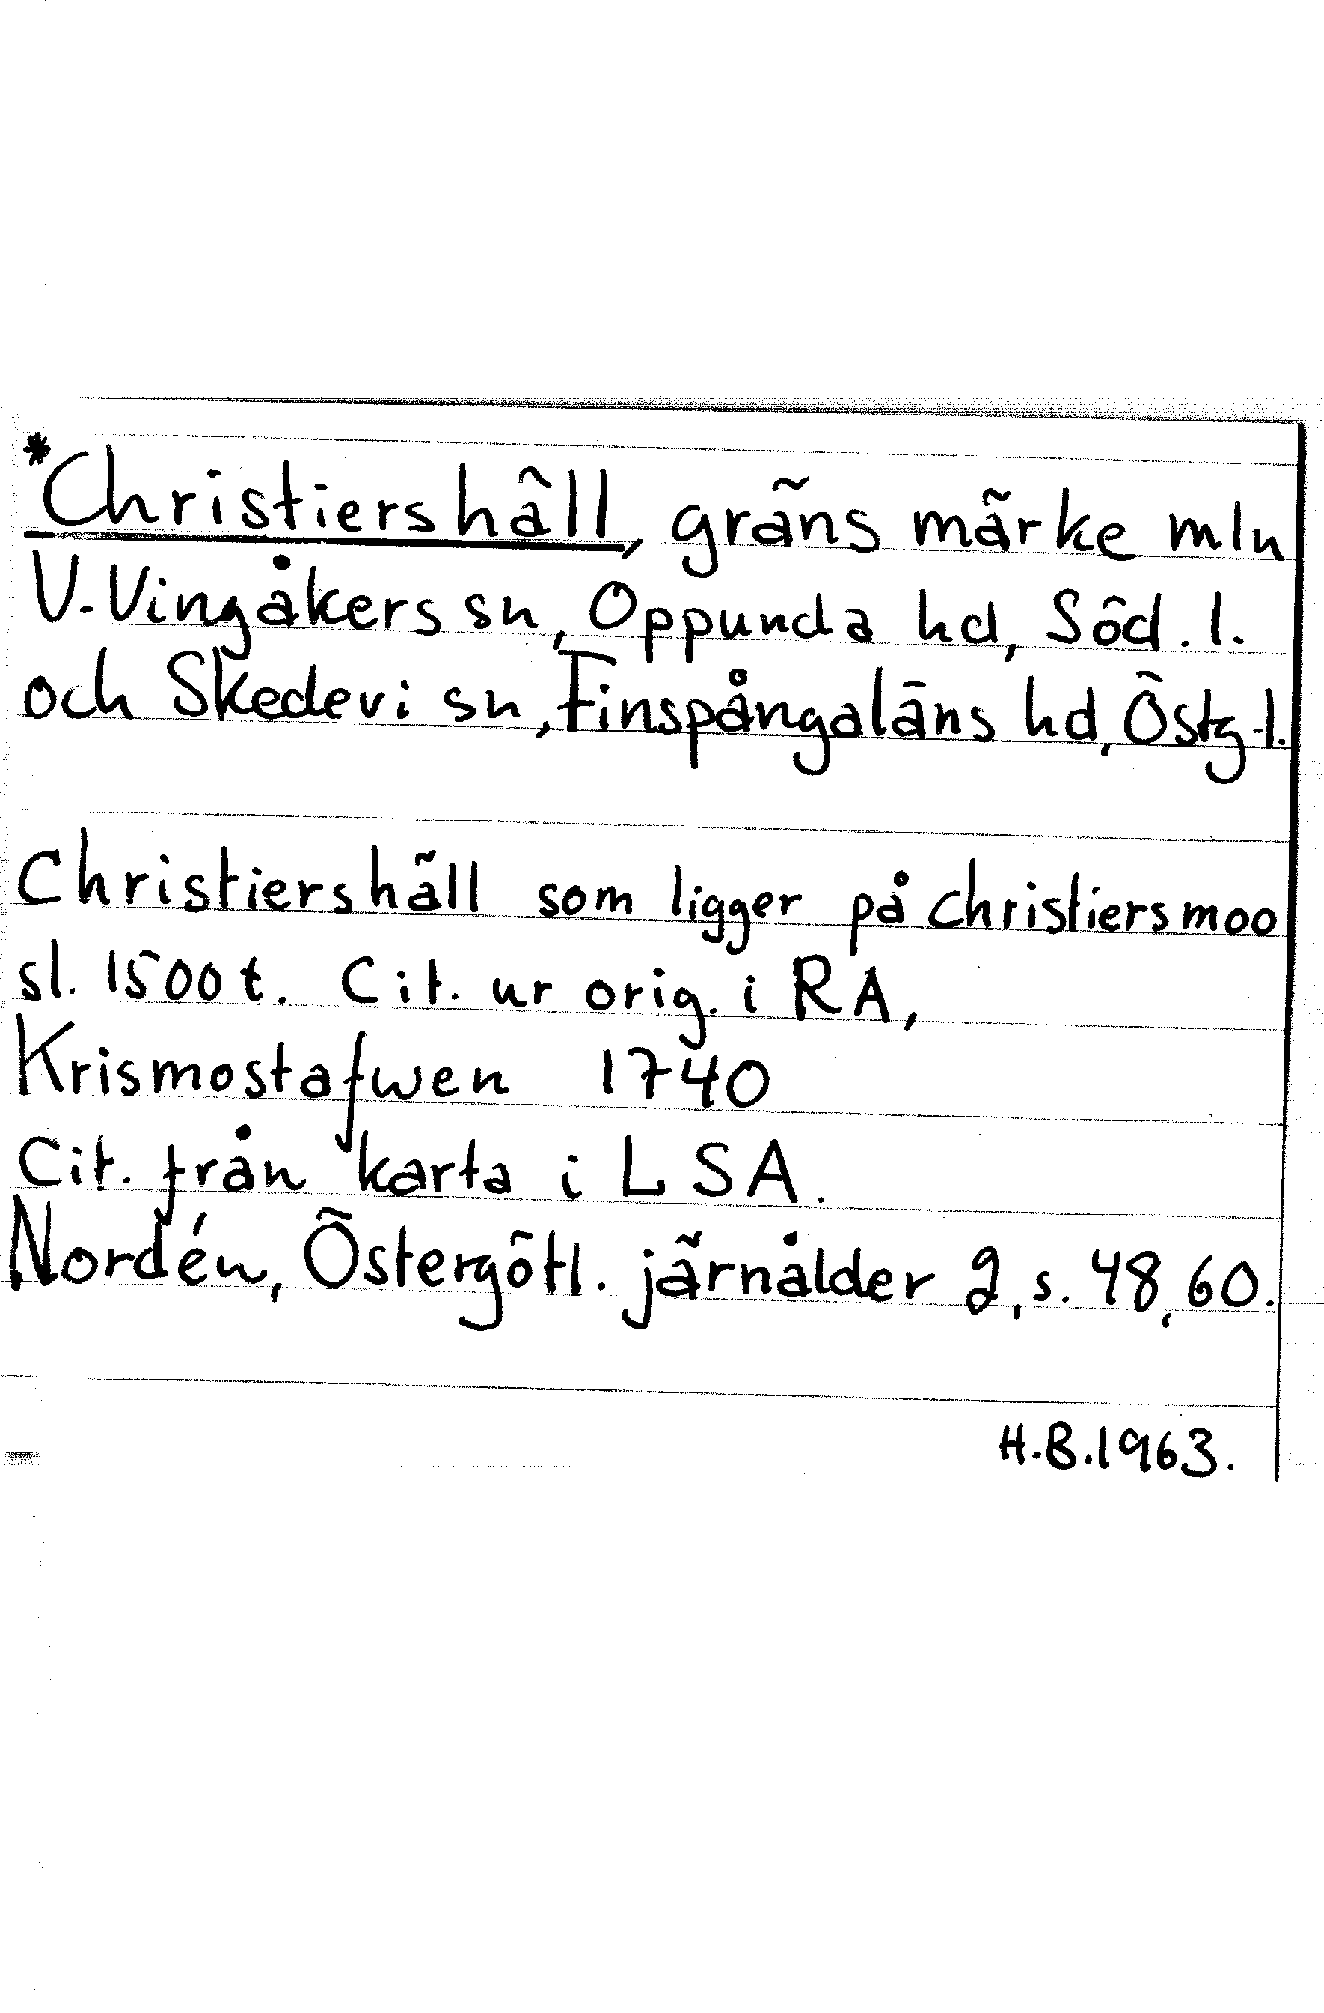 *Christiershäll, gräns märke mln
V. Vingåkers sn, Oppunda hd, Söd. l.
och Skedevi sn, Finspångaläns hd, Östg. l.
Christiershäll som ligger på Christiersmoo
sl. 1500 t. Cit. ur orig. i RA,
Krismostafwen 1740
Cit. från karta i LSA.
Nordén, Östergötl. järnålder 2, s. 48, 60.
H.B. 1963.